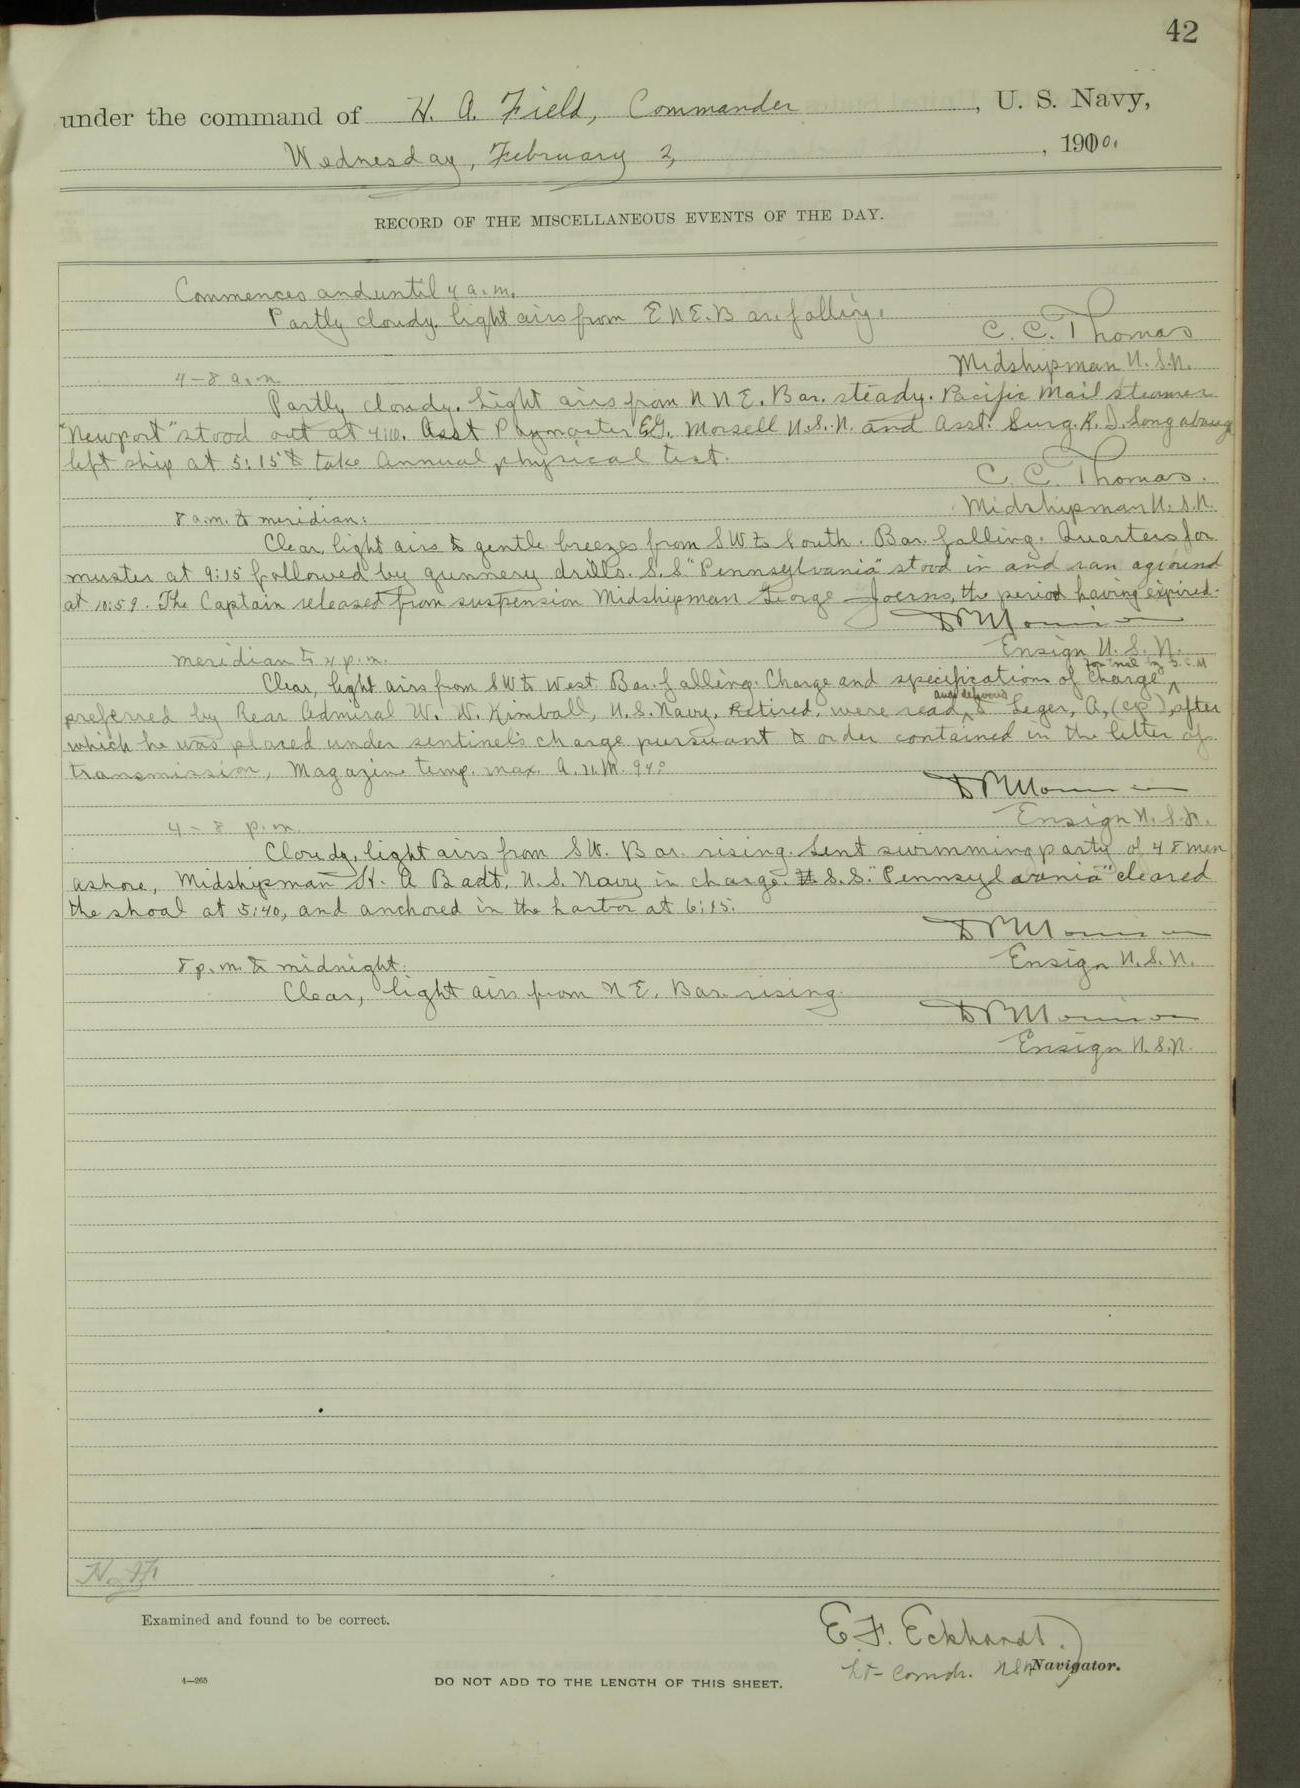 42
under the command of H. A. Field, Commander, U. S. Navy,
Wednesday, February 2, 1910.
RECORD OF THE MISCELLANEOUS EVENTS OF THE DAY.
Commences and until 4 a.m.
Partly cloudy, light airs from E N E. Bar. falling.
C. C. Thomas
Midshipman U.S.N.
4-8 a.m.
Partly cloudy. Light airs from N N E. Bar. steady. Pacific Mail steamer
"Newport" stood out at 4:10. Asst Paymaster E.G. Morsell U.S.N. and Asst. Surg. R. D. Longabaugh
left ship at 5:15 to take annual physical test.
C. C. Thomas.
Midshipman U.S.N.
8 a.m. to meridian:
Clear, light airs to gentle breezes from SW to South. Bar. falling. Quarters for
muster at 9:15 followed by gunnery drills. S.S "Pennsylvania" stood in and ran aground
at 10:59. The Captain released from suspension Midshipman George Joerns, the period having expired.
Ensign U.S.N.
meridian to 4 p.m.
Clear, light airs from SW to West. Bar. falling. Charge and specifications of charge for trial by S.C.M
preferred by Rear Admiral W. W. Kimball, U.S. Navy, Retired, were read and delivered to Leger, A, (cp), after
which he was placed under sentinel's charge pursuant to order contained in the letter of
transmission, Magazine temp. max. 94°
Ensign U.S.N.
4-8 p.m.
Cloudy, light airs from SW. Bar. rising. Sent swimming party of 48 men
ashore, Midshipman H. A Badt, U.S. Navy in charge. S.S. "Pennsylvania" cleared
the shoal at 5:40, and anchored in the harbor at 6:15.
Ensign U.S.N.
8 p.m. to midnight.
Clear, light airs from N E. Bar. rising.
Ensign U.S.N.
Examined and found to be correct.
E. F. Eckhardt.
Lt-Comdr. USN Navigator.
4—265
DO NOT ADD TO THE LENGTH OF THIS SHEET.